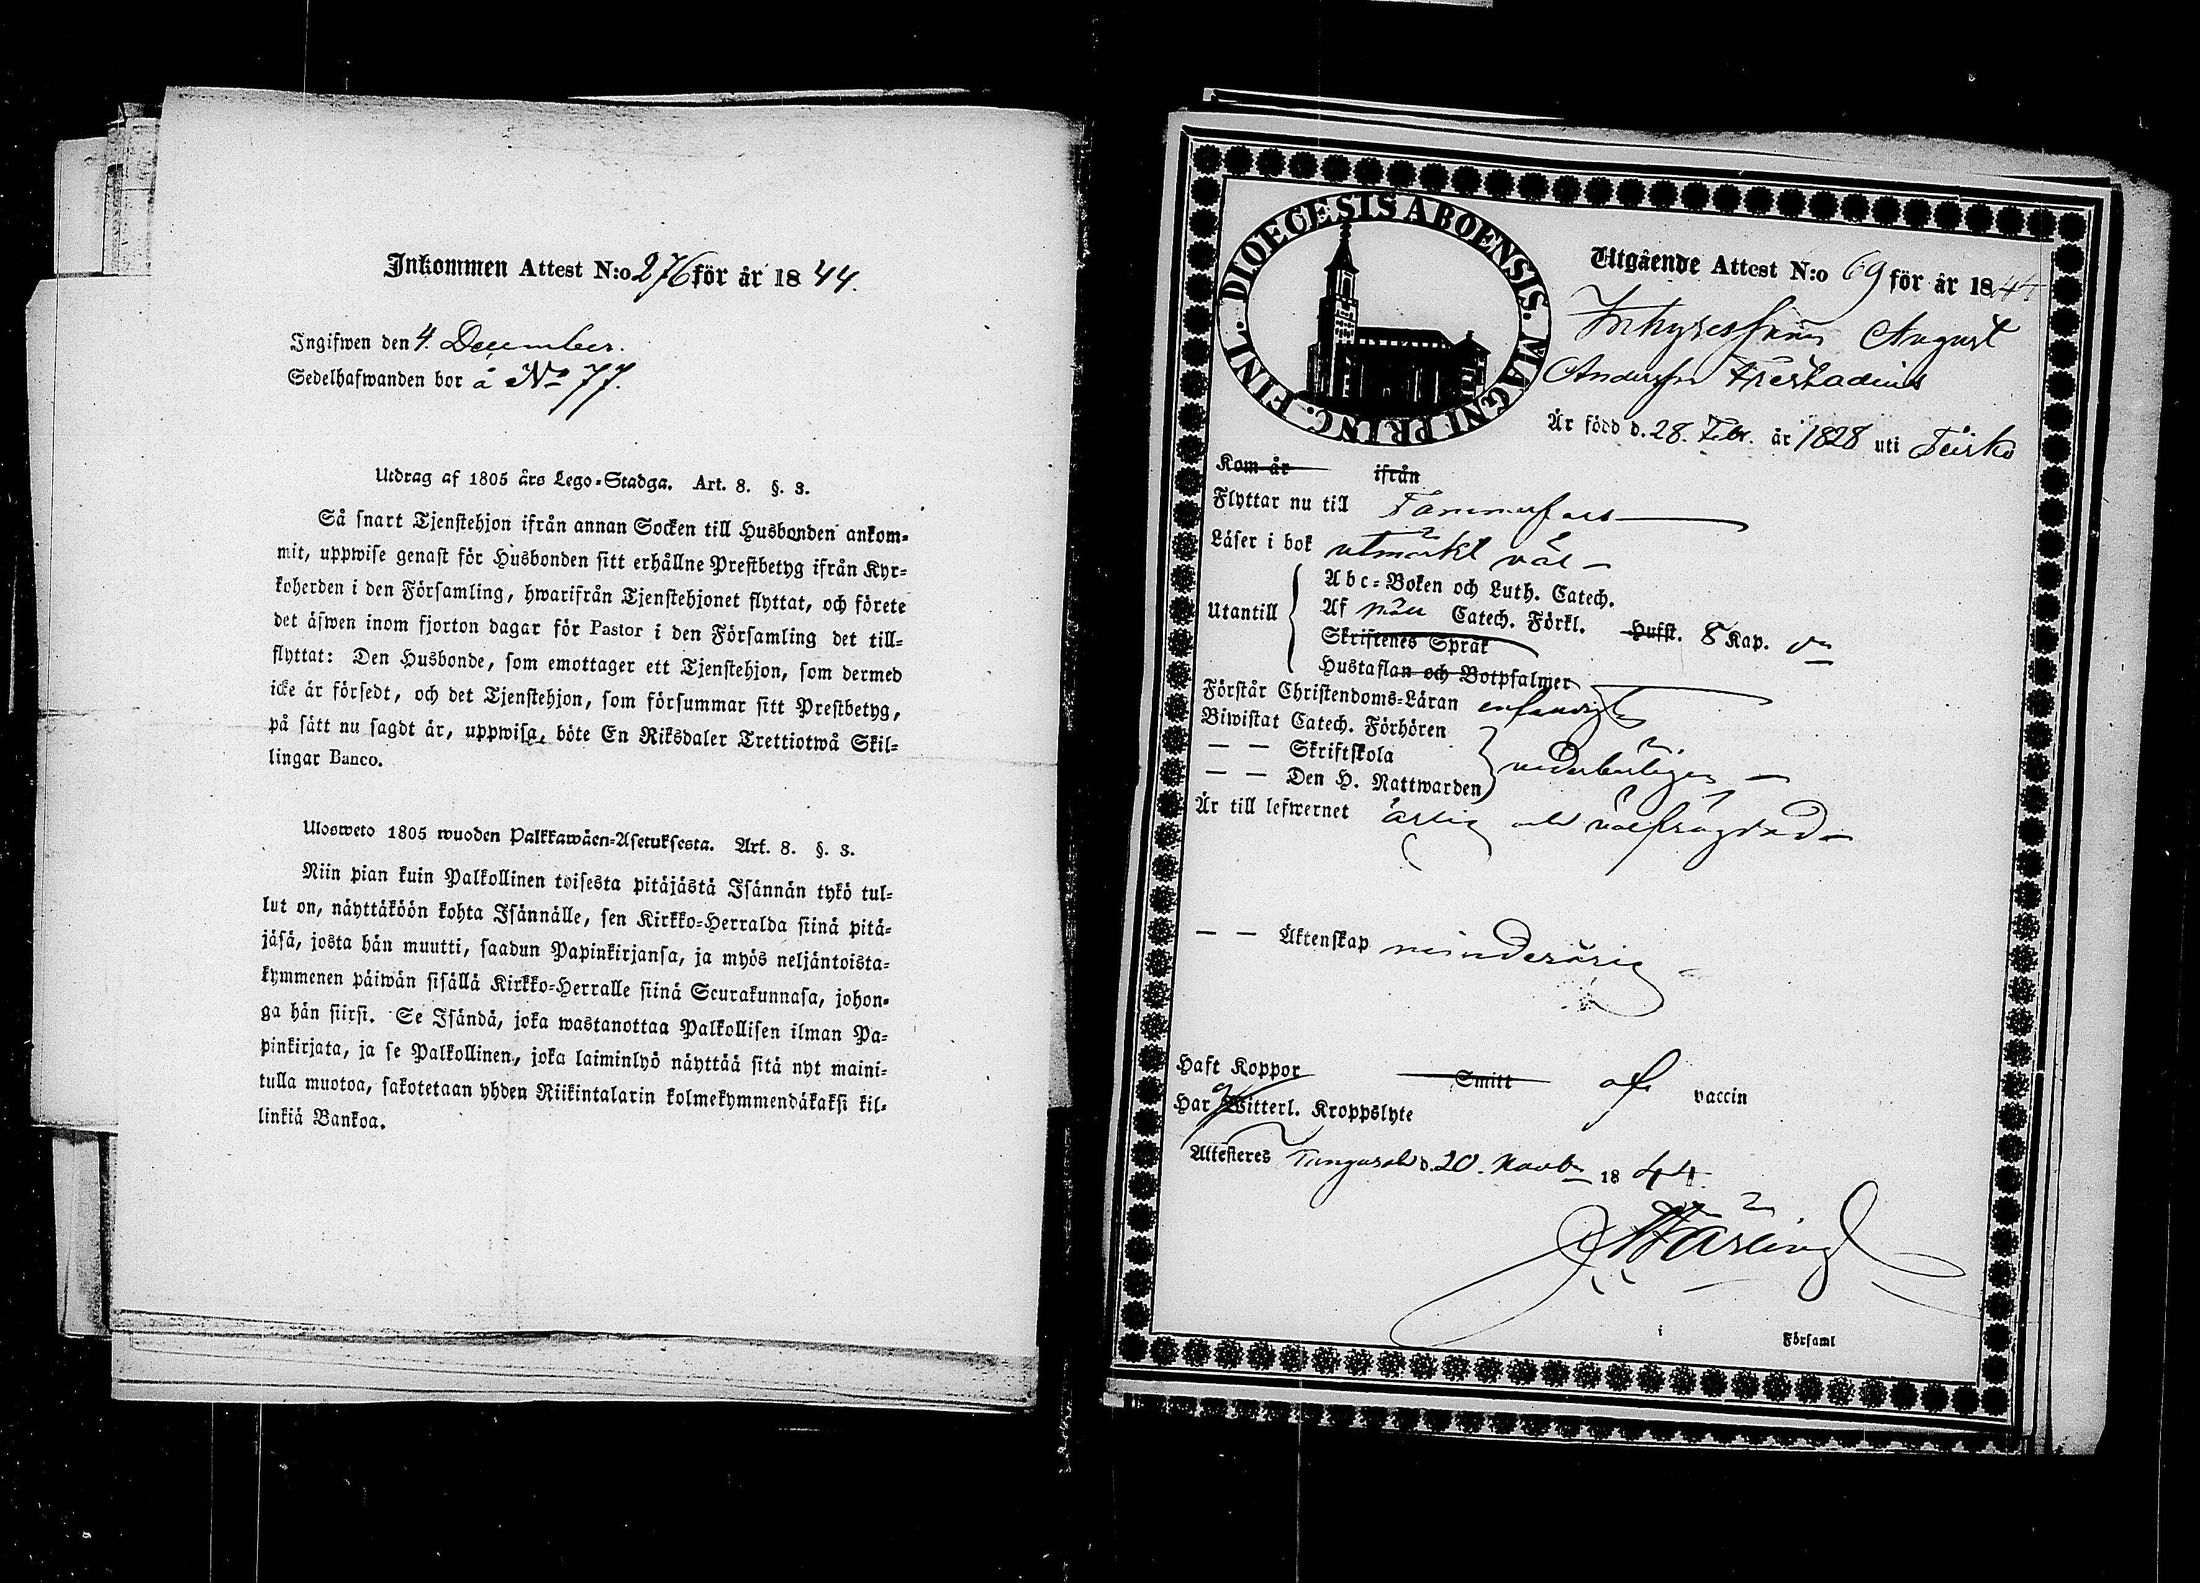 Inkommen Attest N:o 276 för år 1844.
Ingifwen den 4. December.
Sedelhafwanden bor å No 77.
Utdrag af 1805 års Lego-Stadga. Art. 8. §. 3.
Så snart Tjenstehjon ifrån annan Socken till Husbonden ankom-
mit, uppwise genast för Husbonden sitt erhållne Prestbetyg ifrån Kyr-
koherden i den Församling, hwarifrån Tjenstehjonet flyttat, och förete
det äfwen inom fjorton dagar för Pastor i den Församling det till-
flyttat: Den Husbonde, som emottager ett Tjenstehjon, som dermed
icke är försedt, och det Tjenstehjon, som försummar sitt Prestbetyg,
på sätt nu sagdt är, uppwisa, böte En Riksdaler Trettiotwå Skil-
lingar Banco.
Ulosweto 1805 wuoden Palkkawäen-Asetuksesta. Art. 8. §. 3.
Niin pian kuin Palkollinen toisesta pitäjästä Isännän tykö tul-
lut on, näyttäköön kohta Isännälle, sen Kirkko-Herralda siinä pitä-
jäsä, josta hän muutti, saadun Papinkirjansa, ja myös neljäntoista-
kymmenen päiwän sisällä Kirkko-Herralle siinä Seurakunnasa, johon-
ga hän siirsi. Se Isändä, joka wastanottaa Palkollisen ilman Pa-
pinkirjata, ja se Palkollinen, joka laiminlyö näyttää sitä nyt maini-
tulla muotoa, sakotetaan yhden Riikintalarin kolmekymmendäkaksi kil-
linkiä Bankoa.
DIOECESIS ABOENSIS. MAGNI PRINC. FINL.
Utgående Attest N:o 69 för år 1844
August
Andersson
Är född d. 28. Febr. år 1828 uti Teisko
Kom år ifrån
Flyttar nu till Tammerfors
Läser i bok utmärkt väl
Utantill
Abc-Boken och Luth. Catech.
Af Catech. Förkl. Husft. 8 Kap.
Skriftenes Språk
Hustaflan och Botpsalmer
Förstår Christendoms-Läran
Biwistat Catech. Förhören
— — Skriftskola
— — Den H. Nattwarden vederbörligen
Är till lefwernet ärlig och välfrägdad
— — Äktenskap minderårig
Haft Koppor Smitt af vaccin
Har ej Witterl. Kroppslyte
Attesteres d. 20. Novbr 1844.
i Församl